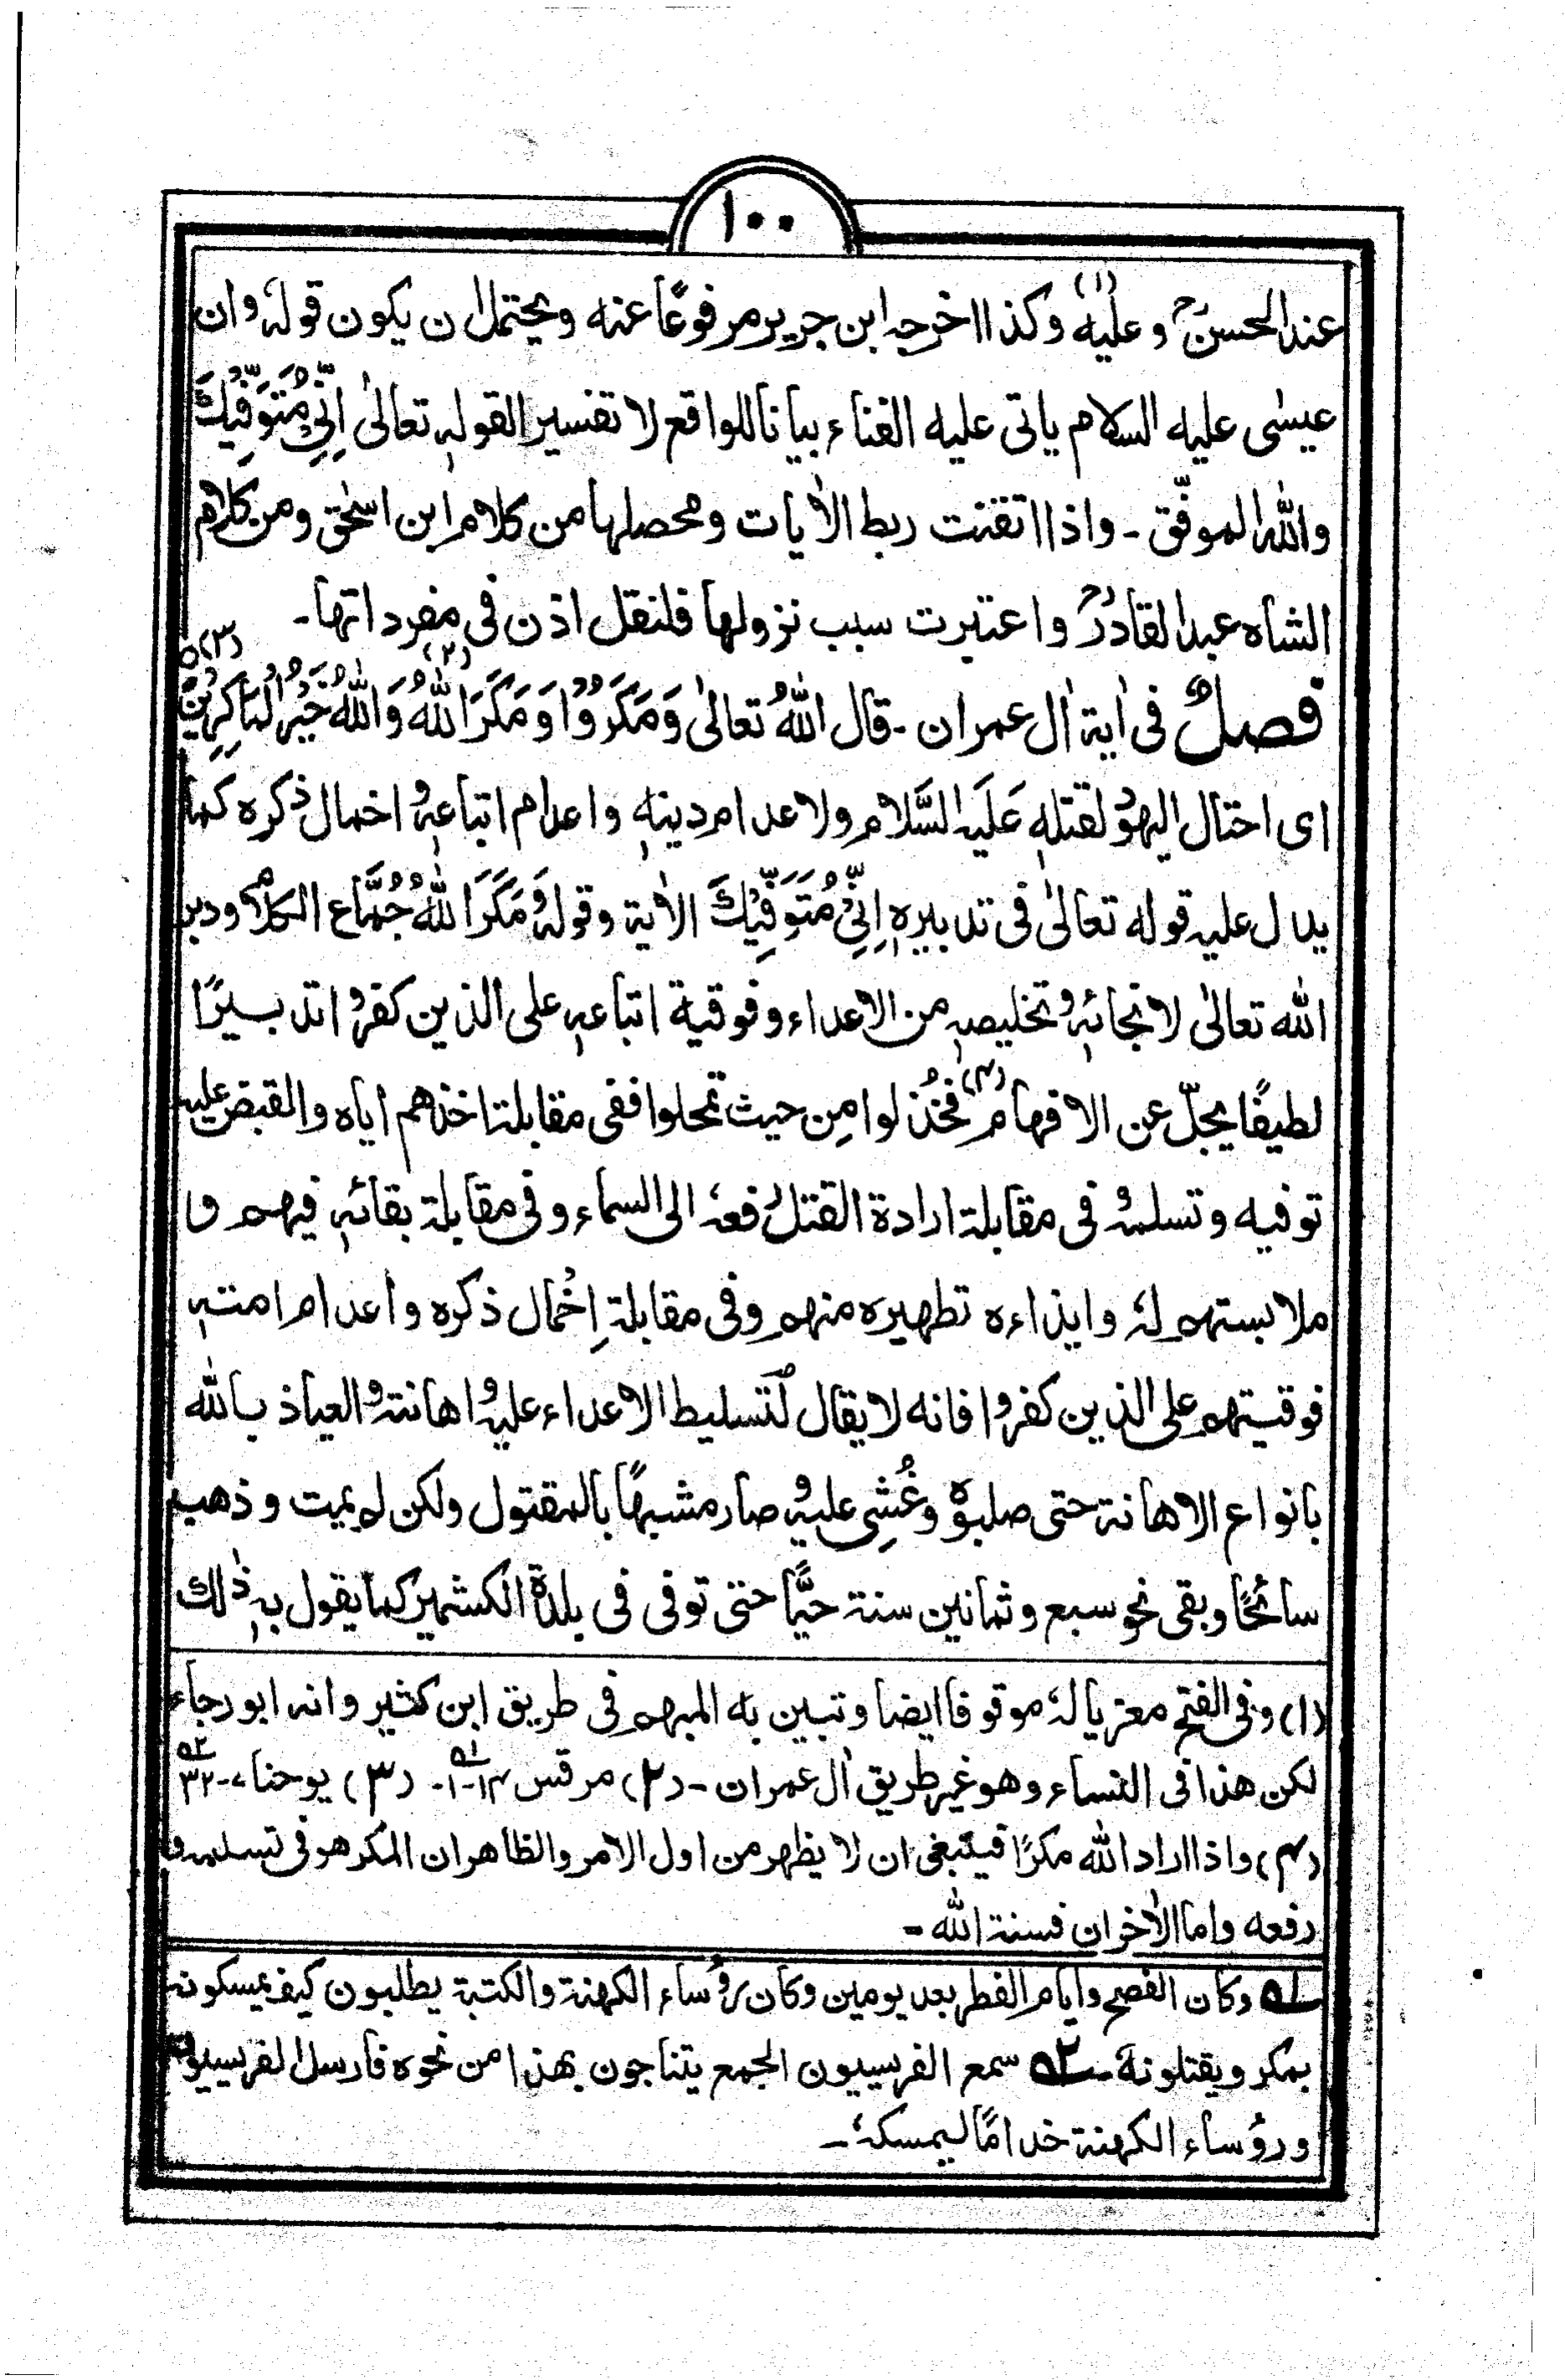 ١٠٠
عندالحسنؒ وعليه (١) وكذااخرجه ابن جريرمرفوعًاعنه ويحتمل ان يكون قولهٗ وان
عيسٰى عليه السلام ياتى عليه الفناء بياناللواقع لا تفسيرالقولهٖ تعالىٰ اِنِّىْ مُتَوَفِّيْكَ
واللّٰه الموفّق ـ واذااتقنت ربط الاٰيات ومحصلها من كلام ابن اسحٰق ومن كلام
الشاه عبدالقادرؒ واعتبرت سبب نزولها فلنقل اذن فى مفرداتها ـ
فصلٌ فى اٰية اٰل عمران ـ قال اللّٰهُ تعالىٰ وَمَكَرُوْا وَمَكَرَ اللّٰهُ (٢) وَاللّٰهُ خَيْرُ الْمَاكِرِيْنَ (٣)
اى احتال اليهود لقتلهٖ عَلَيه السَّلام ولاعدام دينهٖ واعدام اتباعهٖ واخمال ذكره كما
يدل عليه قوله تعالىٰ فى تدبيرهٖ اِنِّىْ مُتَوَفِّيْكَ الاٰية وقولهٗ وَمَكَرَ اللّٰهُ جُمَّاع الكلام ودبر
اللّٰه تعالىٰ لانجائهٖ وتخليصهٖ من الاعداء وفوقية اتباعهٖ على الذين كفروا تدبيرًا
لطيفًا يجلّ عن الافهام (٤) فخُذلوا مِن حيث تمحلوا ففى مقابلة اخذهم اياه والقبض عليه
توفيه وتسلمهٗ وفى مقابلة ارادة القتل رفعهٗ الى السماء وفى مقابلة بقائهٖ فيهم و
ملابستهم لهٗ وايذاءه تطهيره منهم وفى مقابلة اِخْمال ذكره واعدام امتهٖ
فوقيتهم على الذين كفروا فانه لا يقال لتسليط الاعداء عليه واهانتهٗ والعياذ باللّٰه
بانواع الاهانة حتى صلبوه وغُشِى عليه وصار مشبهًا بالمقتول ولكن لم يمت وذهب
سائحًا وبقى نحو سبع وثمانين سنة حيًّا حتى توفى فى بلدة الكشمير كما يقول بهٖ ذٰلك
(١) وفى الفتح معزيا لهٗ موقوفا ايضا وتبين به المبهم فى طريق ابن كثير وانه ابورجاء
لكن هذا فى النساء وهو غير طريق اٰل عمران ـ (٢) مرقس ١٤-١ ـ ۵۱ (٣) يوحنا ٧-٣٢ ۵۲
(٤) واذااراداللّٰه مكرًا فينبغى ان لا يظهر من اول الامر والظاهر ان المكر هو فى تسلمه و
رفعه واما الاٰخران فسنة اللّٰه ـ
۵۱ وكان الفصح وايام الفطر بعد يومين وكان رؤساء الكهنة والكتبة يطلبون كيف يمسكونه
بمكر ويقتلونهٗ ـ ۵۲ سمع الفريسيون الجمع يتناجون بهذا من نحوه فارسل الفريسيون
ورؤساء الكهنة خدامًا ليمسكهٗ ـ